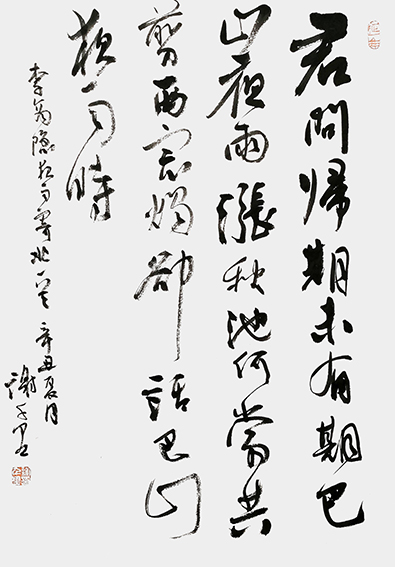 君問帰期未有期巴
山夜雨漲秋池何當共
剪西窗燭卻話巴山
夜雨時
李商隱夜雨寄北一首 辛丑夏月
謝